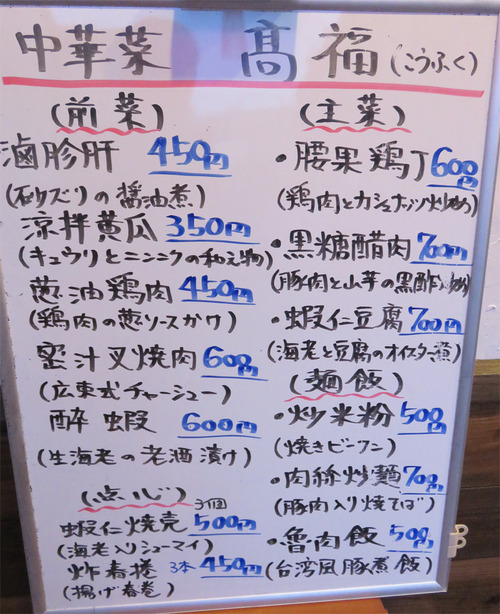 中華菜 高福(こうふく)
(前菜)
滷胗肝 450円
(砂ズリの醤油煮)
涼拌黄瓜 350円
(キュウリとニンニクの和え物)
葱油鶏肉 450円
(鶏肉の葱ソースかけ)
蜜汁叉焼肉 600円
(広東式チャーシュー)
酔蝦 600円
(生海老の老酒漬け)
(点心)
蝦仁焼売 3個 500円
(海老入りシューマイ)
炸春捲 3本 450円
(揚げ春巻)
(主菜)
・腰果鶏丁 600円
(鶏肉とカシュナッツ炒め)
・黒糖醋肉 700円
(豚肉と山芋の黒酢炒め)
・蝦仁豆腐 700円
(海老と豆腐のオイスター煮)
(麺飯)
・炒米粉 500円
(焼きビーフン)
・肉絲炒麺 700円
(豚肉入り焼そば)
・魯肉飯 500円
(台湾風豚煮飯)